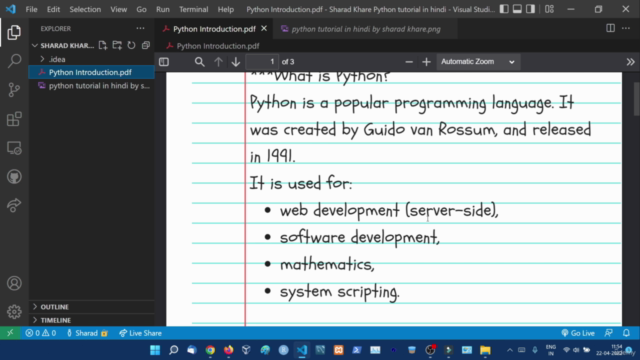 File Edit Selection View Go Run Terminal Help
Python Introduction.pdf - Sharad Khare Python tutorial in hindi - Visual Studi...
EXPLORER
Python Introduction.pdf
python tutorial in hindi by sharad khare.png
SHARAD KHAR...
Python Introduction.pdf
.idea
Python Introduction.pdf
python tutorial in hindi by s...
1 of 3
Automatic Zoom
***What is Python?
Python is a popular programming language. It
was created by Guido van Rossum, and released
in 1991.
It is used for:
• web development (server-side),
• software development,
• mathematics,
• system scripting.
OUTLINE
TIMELINE
0 0 Sharad Live Share
Go Live
ENG
IN
11:54
22-04-2022